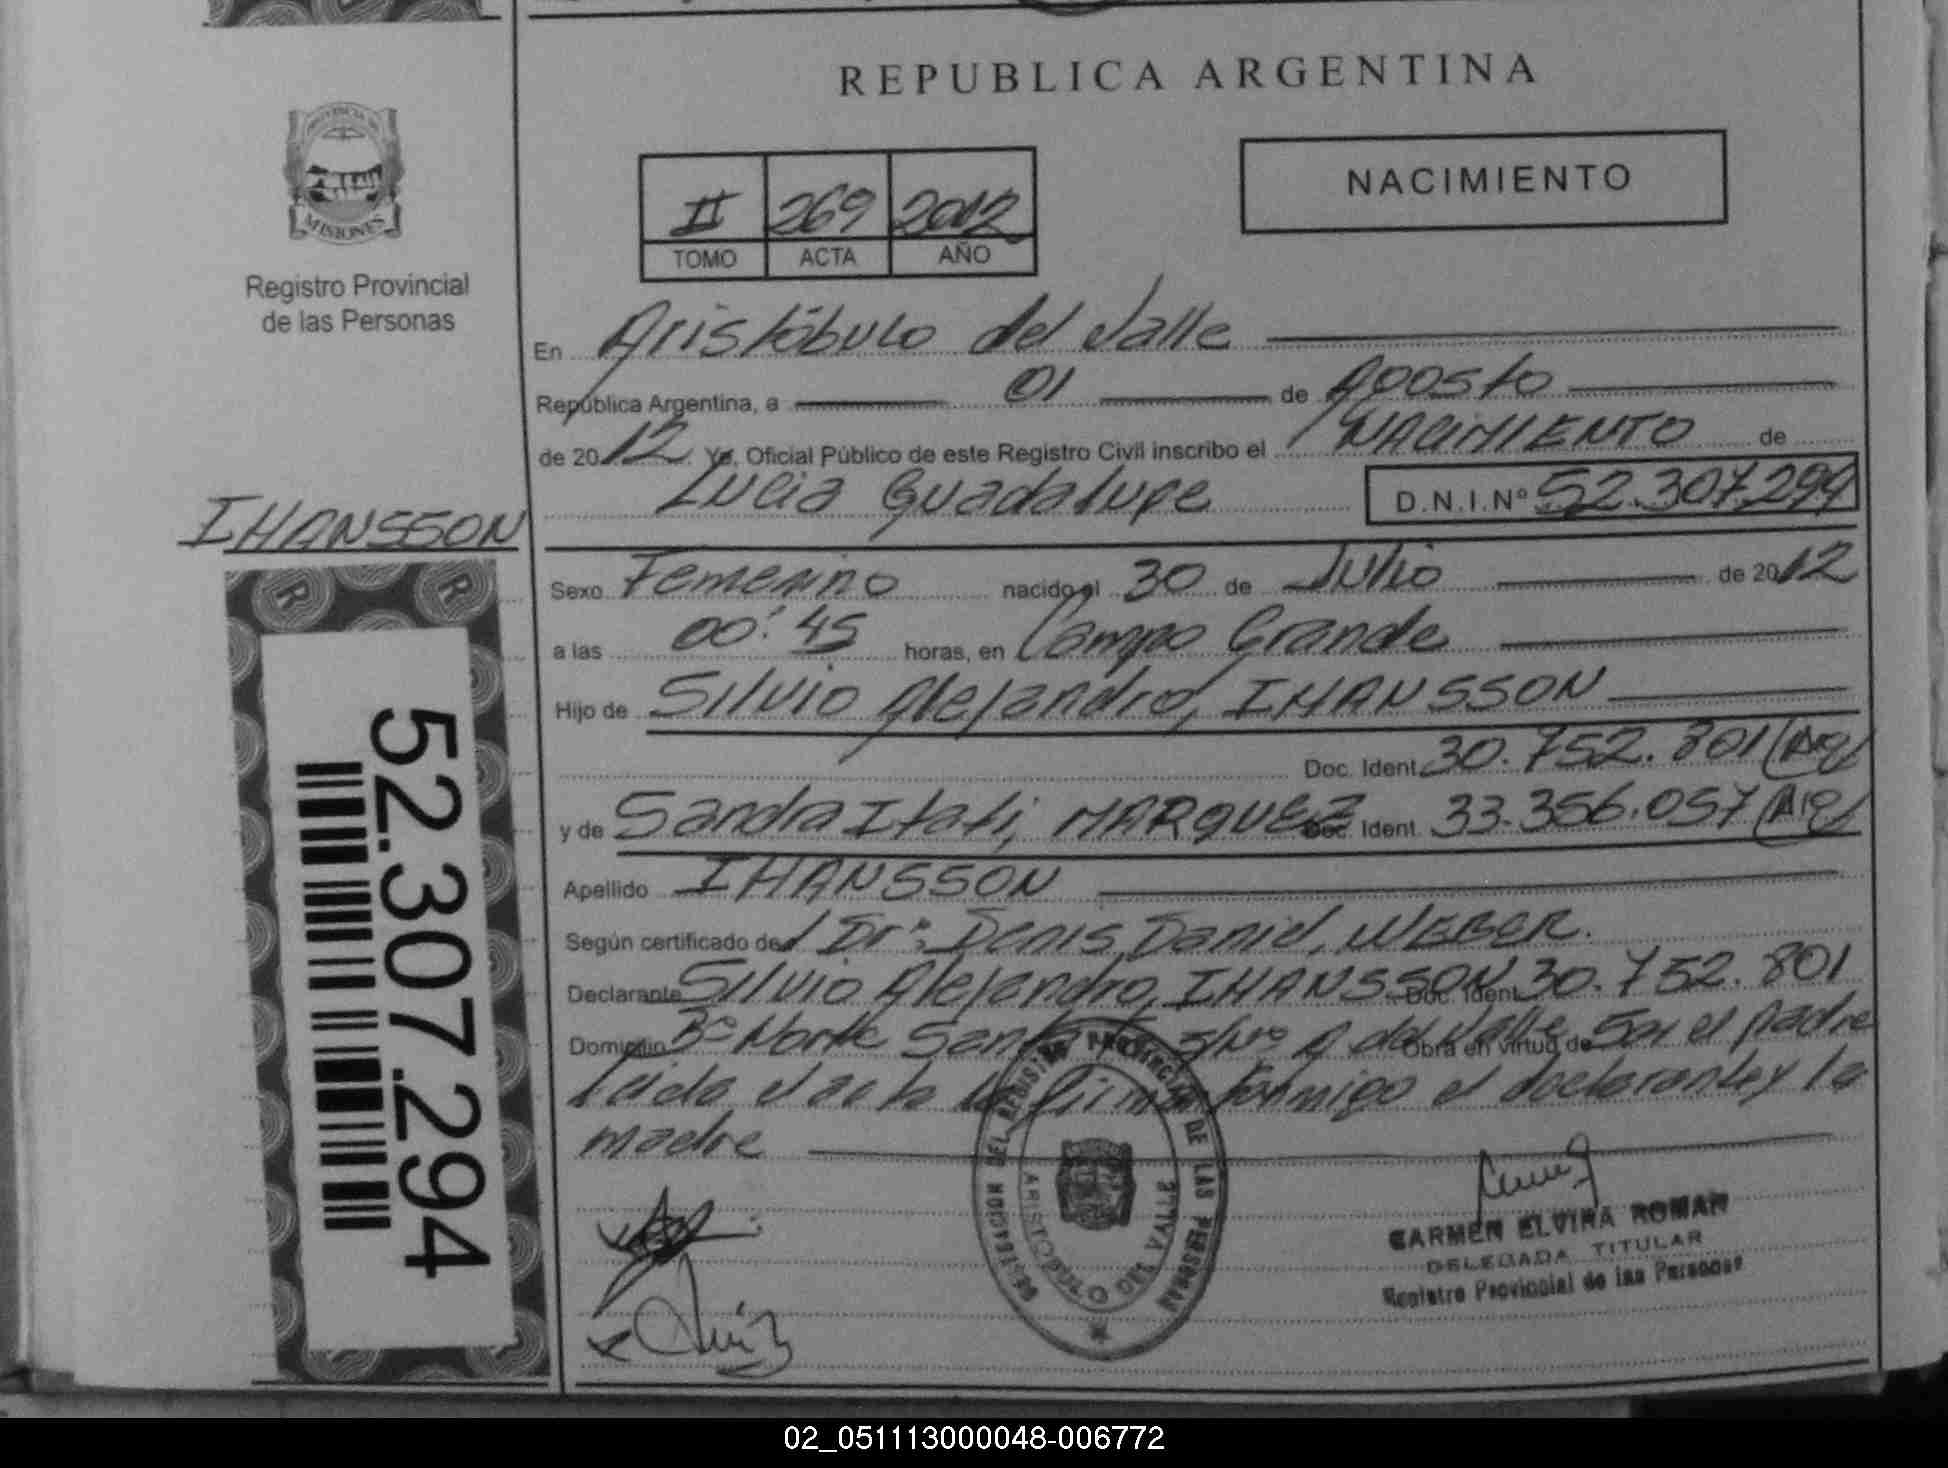 REPUBLICA ARGENTINA
PROVINCIA DE
MISIONES
Registro Provincial
de las Personas
II 269 2012
TOMO ACTA AÑO
NACIMIENTO
En Aristóbulo del Valle
República Argentina, a 01 de Agosto
de 2012 Yo, Oficial Público de este Registro Civil inscribo el NACIMIENTO de
Lucia Guadalupe D.N.I.Nº 52.307.294
IHANSSON
Sexo Femenino nacido el 30 de Julio de 2012
a las 00:45 horas, en Campo Grande
Hijo de Silvio Alejandro, IHANSSON
Doc. Ident. 30.752.801 (Arg)
y de Sandra Itati, MARQUEZ Doc. Ident. 33.356.057 (Arg)
Apellido IHANSSON
Según certificado del Dr: Denis Daniel, WEBER.
Declarante Silvio Alejandro, IHANSSON Doc. Ident. 30.752.801
Domicilio Bº Norte S/Nº A del Valle Obra en virtud de Ser el padre
Leida el acta la firman conmigo el declarante y la
madre
52.307.294
DELEGACION DEL REGISTRO PROVINCIAL DE LAS PERSONAS
ARISTOBULO DEL VALLE
CARMEN ELVIRA ROMAN
DELEGADA TITULAR
Registro Provincial de las Personas
02_051113000048-006772